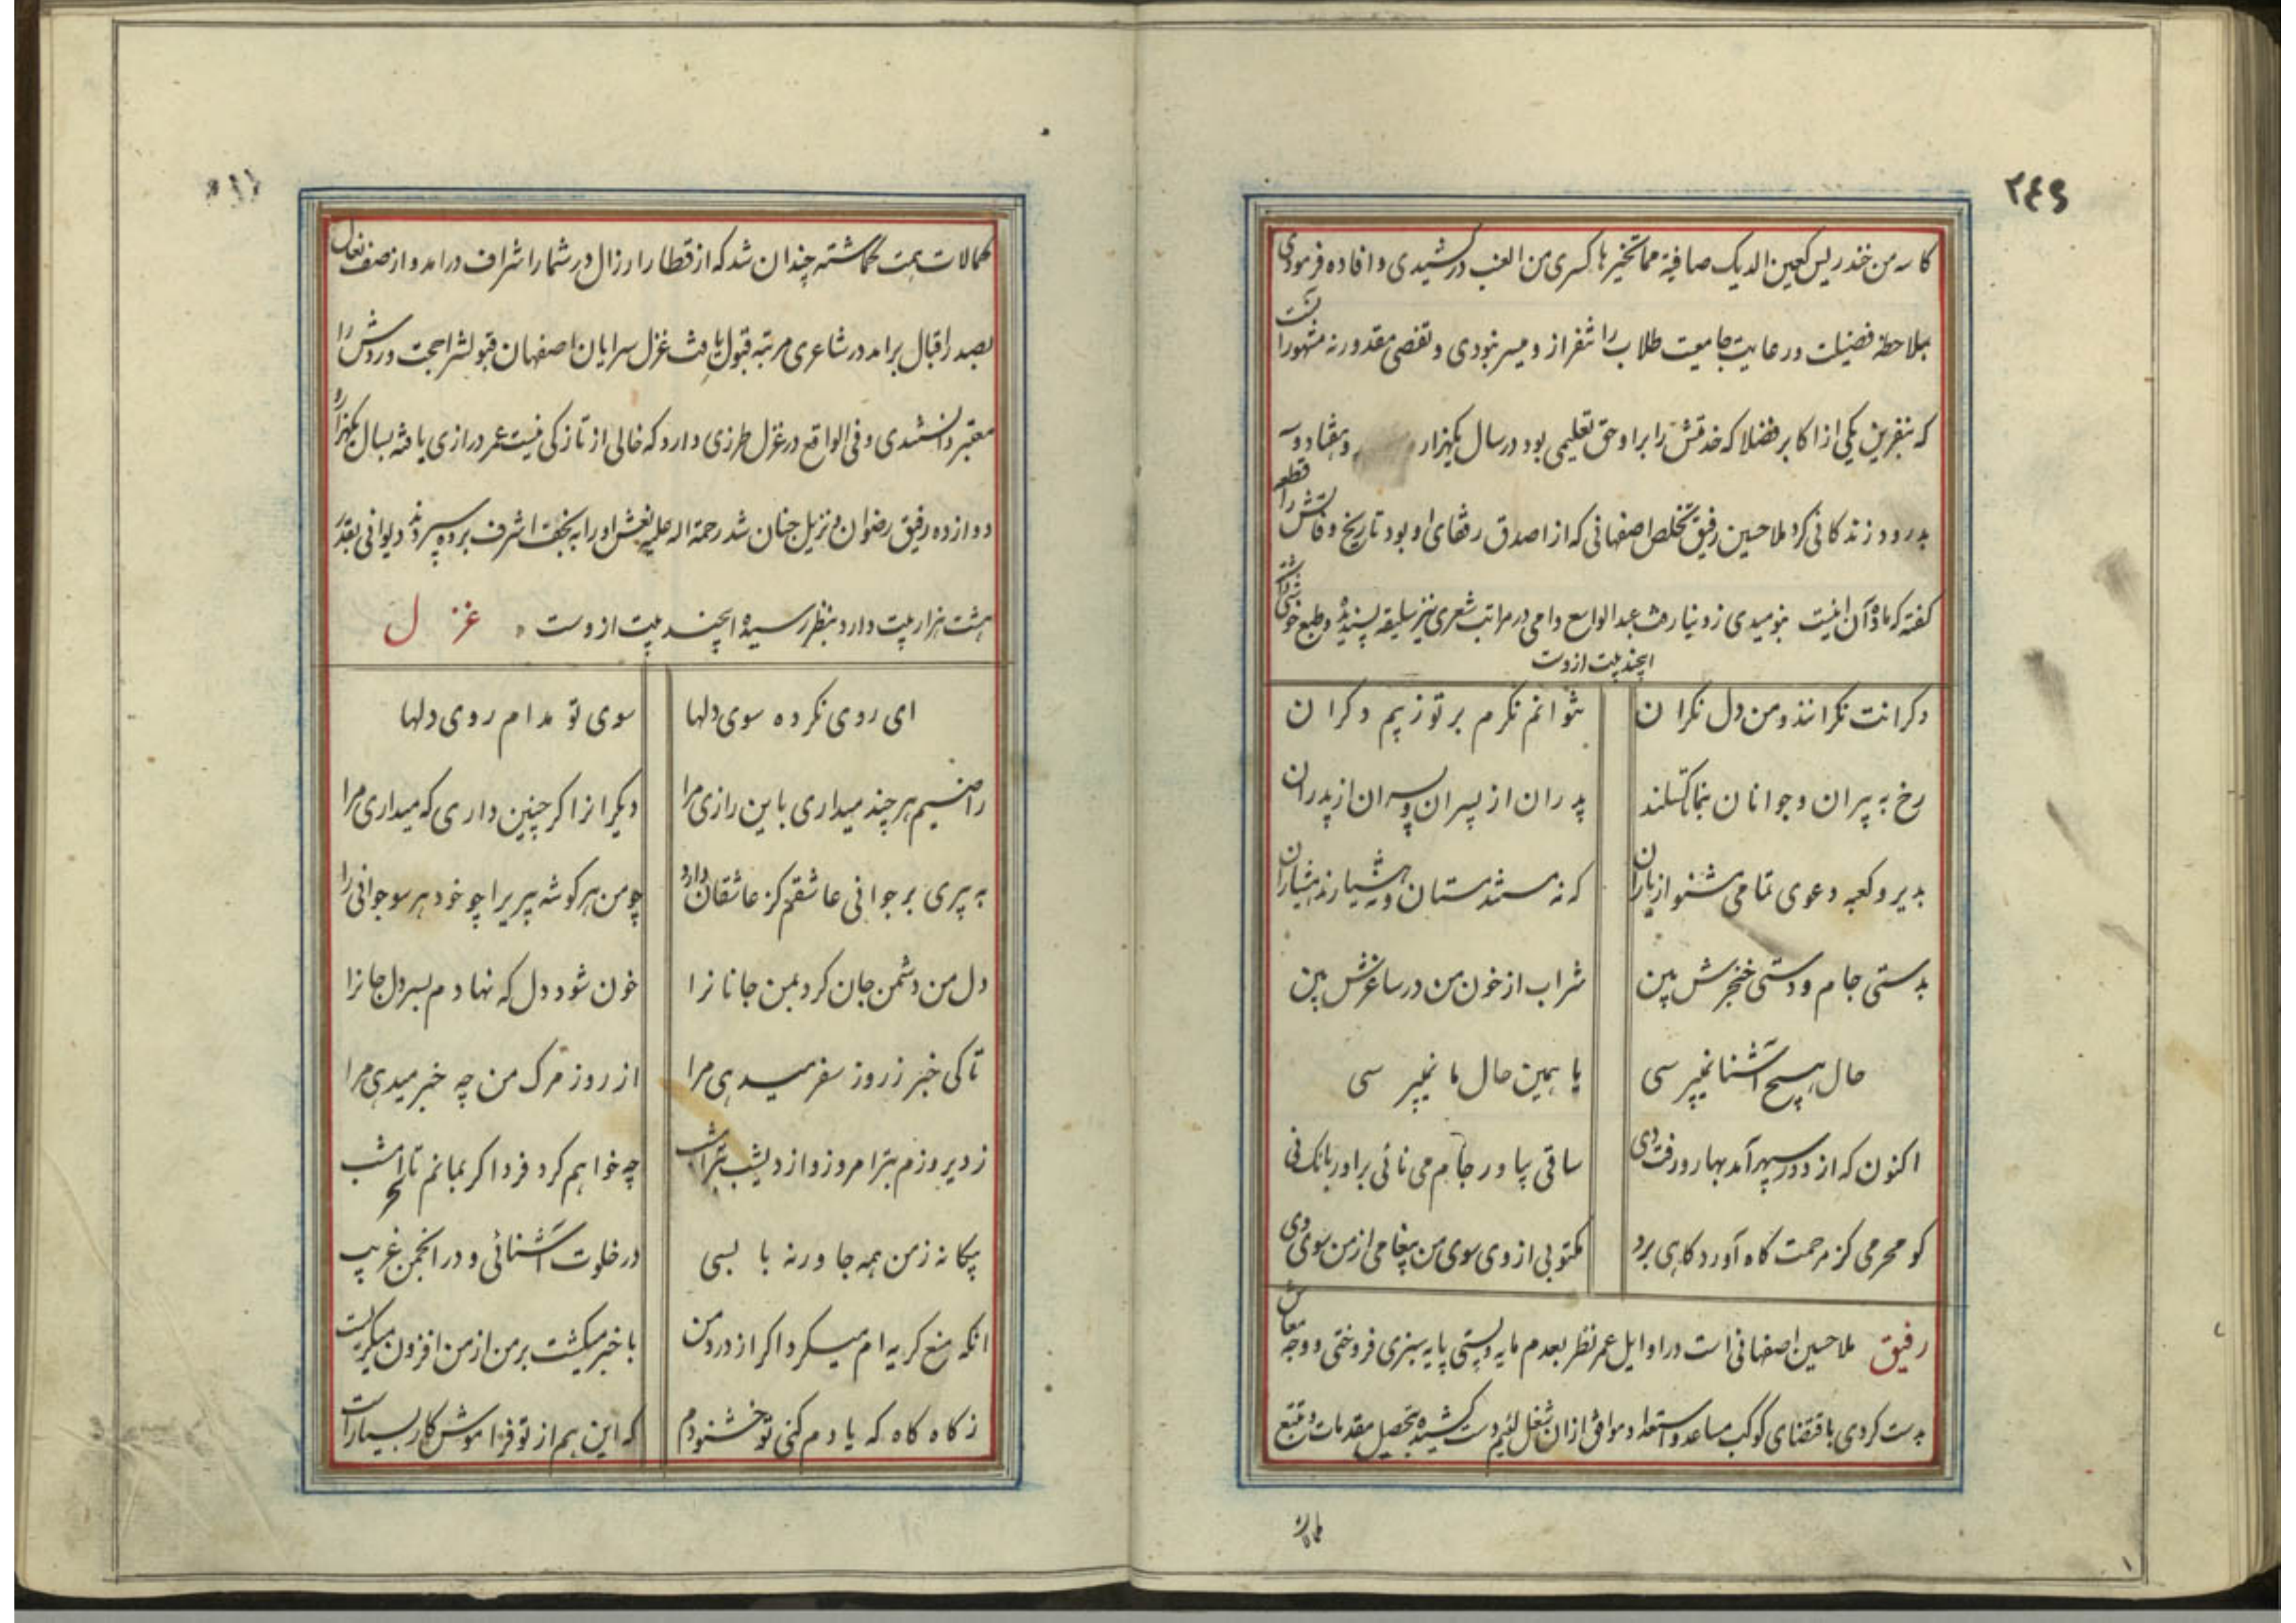 ۲۴۹
کاسه من خندریس کعین الدیک صافیة مما تخیرها کسری من العنب درکشیدی و افاده فرمودی
بملاحظه فضیلت ورعایت جامعیت طلاب را تنفر از و میسر نبودی و تقصی مقدور نه مشهور است
که بنفرین یکی از اکابر فضلا که خدمتش را بر او حق تعلیمی بود در سال یکهزار و هفتاد و
بدرود زندکانی کرد ملا حسین رفیق تخلص اصفهانی که از اصدق رفقای او بود تاریخ وفاتش را قطعه
کفته که ماده آن اینست بنومیدی ز دنیا رفت عبد الواسع وامی در مراتب شعری نیز سلیقه پسندیده و طبع خوشی داشته
اینچند بیت ازوست
دکرانت نکرانند و من دل نکران نتوانم نکرم بر تو ز بیم دکران
رخ به پیران و جوانان بنما تا کسلند پدران از پسران و پسران از پدران
بدیر و کعبه دعوی تمامی مشنو از یاران که نه مستند مستان و نه هشیارند هشیاران
بدستی جام و دستی خنجرش بین شراب از خون من در ساغرش بین
حال هیچ آشنا نمیپرسی یا همین حال ما نمیپرسی
اکنون که از دور سپهر آمد بهار و رفت دی ساقی بیاور جام می نائی براور بانک نی
کو محرمی کز مرحمت کاه آورد کاهی برد مکتوبی از وی سوی من پیغامی از من سوی وی
رفیق ملا حسین اصفهانی است در اوایل عمر نظر بعدم مایه و پستی پایه سبزی فروختی و وجه معاش
بدست کردی باقتضای کوکب مساعد و استعداد موافق ازان شغل لئیم دست کشیده بتحصیل مقدمات و تتبع
کمالات
کمالات همت کماشته چندان شد که از قطار ارزال در شمار اشراف درامد و از صف نعال
بصدر اقبال برامد در شاعری مرتبه قبول یافت غزل سرایان اصفهان قبولش را حجت و ردش را
معتبر دانستندی و فی الواقع در غزل طرزی دارد که خالی از تازکی نیست عمر درازی یافته بسال یکهزار
دوازده رفیق رضوان و نزیل جنان شد رحمة اله علیه نعش او را به نجف اشرف برده سپردند دیوانی بقدر
هشت هزار بیت دارد بنظر رسیده اینچند بیت ازوست غزل
ای روی نکرده سوی دلها سوی تو مدام روی دلها
راضیم هر چند میداری باین رازی مرا دیکرانرا کر چنین داری که میداری مرا
به پیری بر جوانی عاشقم کز عاشقان دارد چو من هر کوشه پیریرا چو خود هر سو جوانی را
دل من دشمن جان کرد بمن جانانرا خون شود دل که نهادم بسر دل جانرا
تا کی خبر ز روز سفر میدهی مرا از روز مرک من چه خبر میدهی مرا
ز دیروزم بتر امروز و از دیشب بتر امشب چه خواهم کرد فردا کر بمانم تا سحر امشب
بیکانه ز من همه جا ورنه با بسی در خلوت آشنائی و در انجمن غریب
انکه منع کریه ام میکرد اکر از درد من با خبر میکشت بر من از من افزون میکریست
ز کاه کاه که یادم کنی تو خشنودم که این هم از تو فراموش کار بسیار است